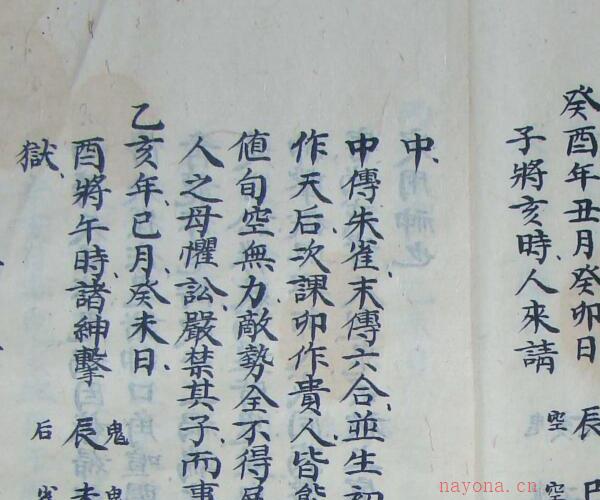 癸酉年丑月癸卯日 辰
子將亥時人來請 空 空
中
中傳朱雀末傳六合並生初
作天后次課卯作貴人皆能
值旬空無力敵勢全不得
人之母懼訟嚴禁其子而事
乙亥年巳月癸未日
酉將午時諸紳擊 辰 鬼 后
獄
nayona.cn